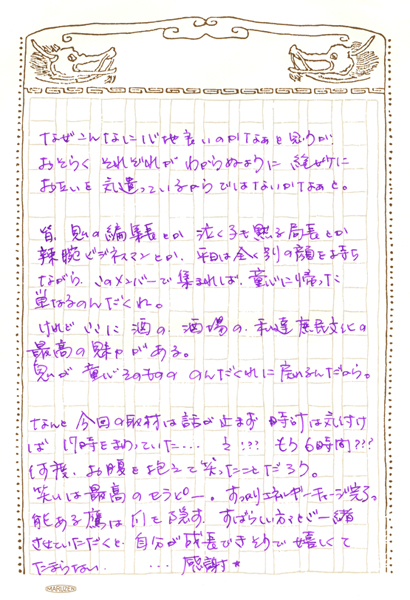 なぜこんなに心地良いのかなぁと思うが
おそらく それぞれが わからぬように 絶妙に
お互いを 気遣っているからではないかなぁと。
皆、鬼の編集長とか 泣く子も黙る局長とか
辣腕ビジネスマンとか、平日は全く別の顔を持ち
ながら、このメンバーで集まれば、童心に帰った
単なるのんだくれ。
けれど ここに 酒の、酒場の、私達 庶民文化の
最高の魅力がある。
鬼が 童心そのものの のんだくれに 戻れるんだから。
なんと 今回の取材は 話が止まず 時計は気付け
ば 17時をまわっていた… え!?? もう6時間???
何度、お腹を抱えて笑ったことだろう。
笑いは最高のセラピー。すっかりエネルギーチャージ完了。
能ある鷹は爪を隠す、すばらしい方々とご一緒
させていただくと 自分が成長できそうで嬉しくて
たまらない … 感謝★
MARUZEN